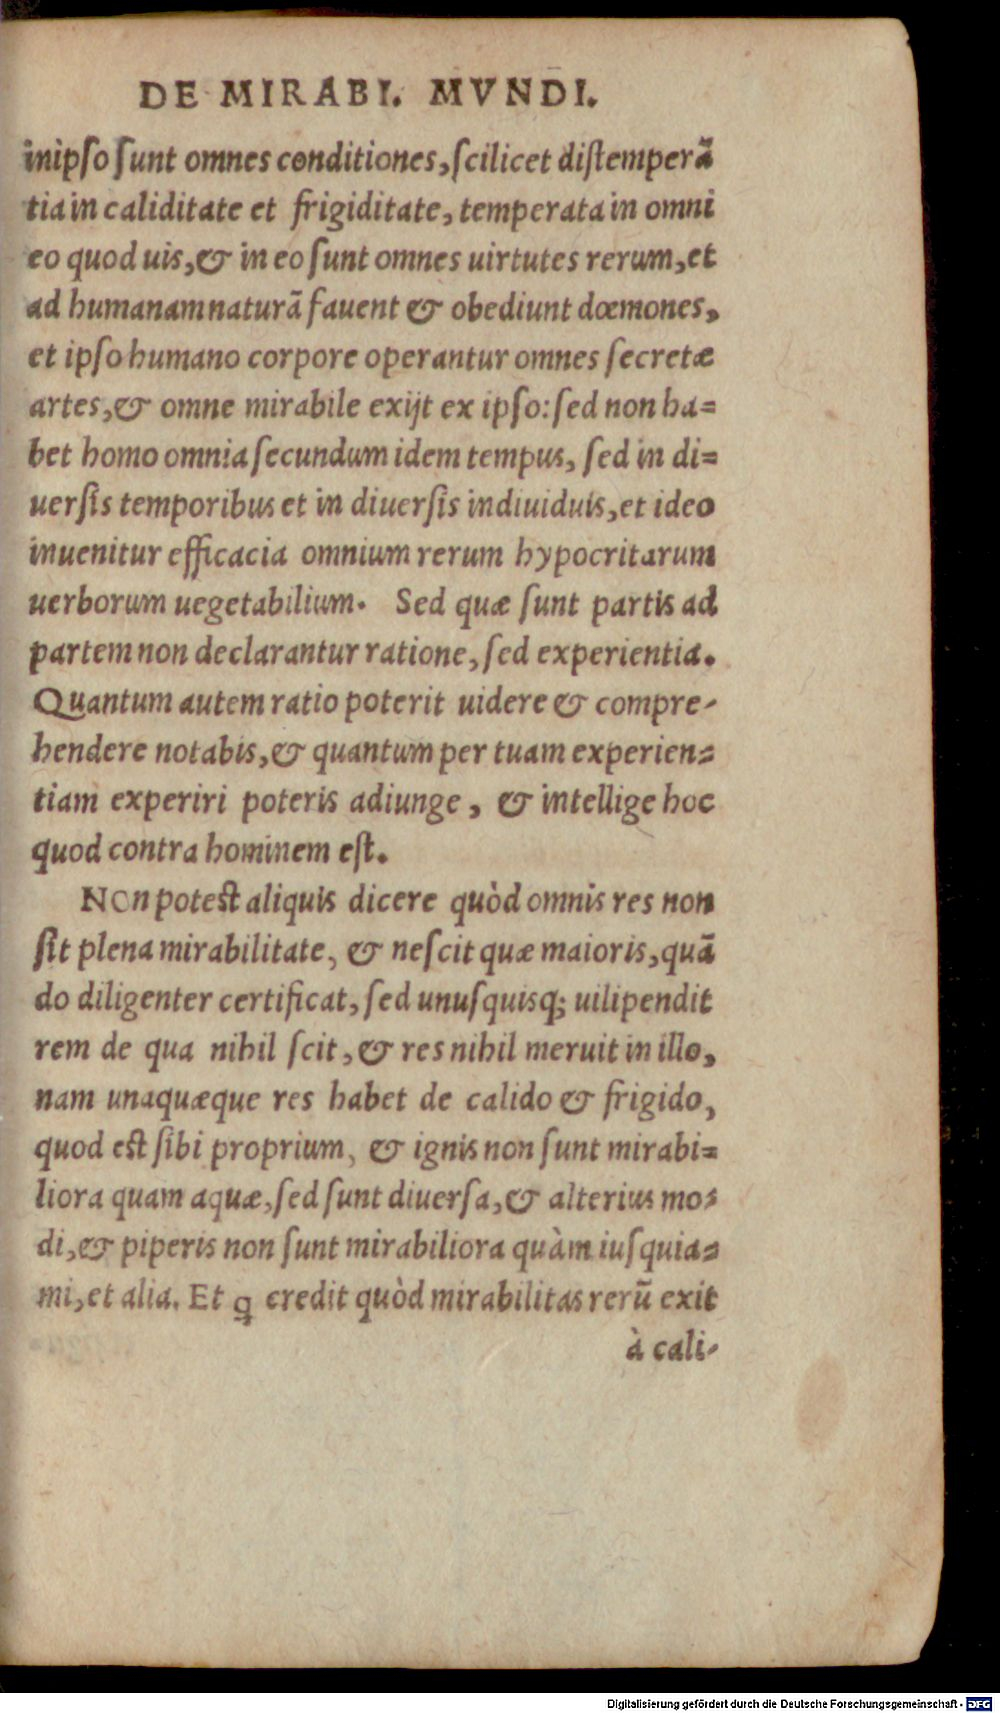 DE MIRABI. MVNDI.
inipso sunt omnes conditiones, scilicet distemperā
tia in caliditate et frigiditate, temperata in omni
eo quod uis, & in eo sunt omnes uirtutes rerum, et
ad humanam naturā fauent & obediunt dœmones,
et ipso humano corpore operantur omnes secretæ
artes, & omne mirabile exijt ex ipso: sed non ha=
bet homo omnia secundum idem tempus, sed in di=
uersis temporibus et in diuersis indiuiduis, et ideo
inuenitur efficacia omnium rerum hypocritarum
uerborum uegetabilium. Sed quæ sunt partis ad
partem non declarantur ratione, sed experientia.
Quantum autem ratio poterit uidere & compre-
hendere notabis, & quantum per tuam experien=
tiam experiri poteris adiunge, & intellige hoc
quod contra hominem est.
NOn potest aliquis dicere quòd omnis res non
sit plena mirabilitate, & nescit quæ maioris, quā
do diligenter certificat, sed unusquisq; uilipendit
rem de qua nihil scit, & res nihil meruit in illo,
nam unaquæque res habet de calido & frigido,
quod est sibi proprium, & ignis non sunt mirabi=
liora quam aquæ, sed sunt diuersa, & alterius mo=
di, & piperis non sunt mirabiliora quàm iusquia=
mi, et alia. Et ꝗ credit quòd mirabilitas rerū exit
à cali-
Digitalisierung gefördert durch die Deutsche Forschungsgemeinschaft - DFG